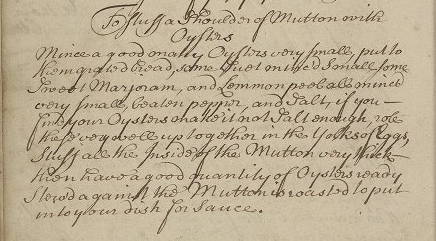 To Stuff a Shoulder of Mutton with
Oysters
Mince a good many Oysters very small, put to
them grated bread, some Suet minc'd small, some
Sweet Marjoram, and Lemmon peel all minc'd
very small, beaten pepper, and Salt, if you
find your Oysters make it not Salt enough, role
these very well up together in the Yolks of Eggs,
Stuff all the Inside of the Mutton very thick
then have a good quantity of Oysters ready
Stew'd against the Mutton is roasted to put
into your dish for Sauce.